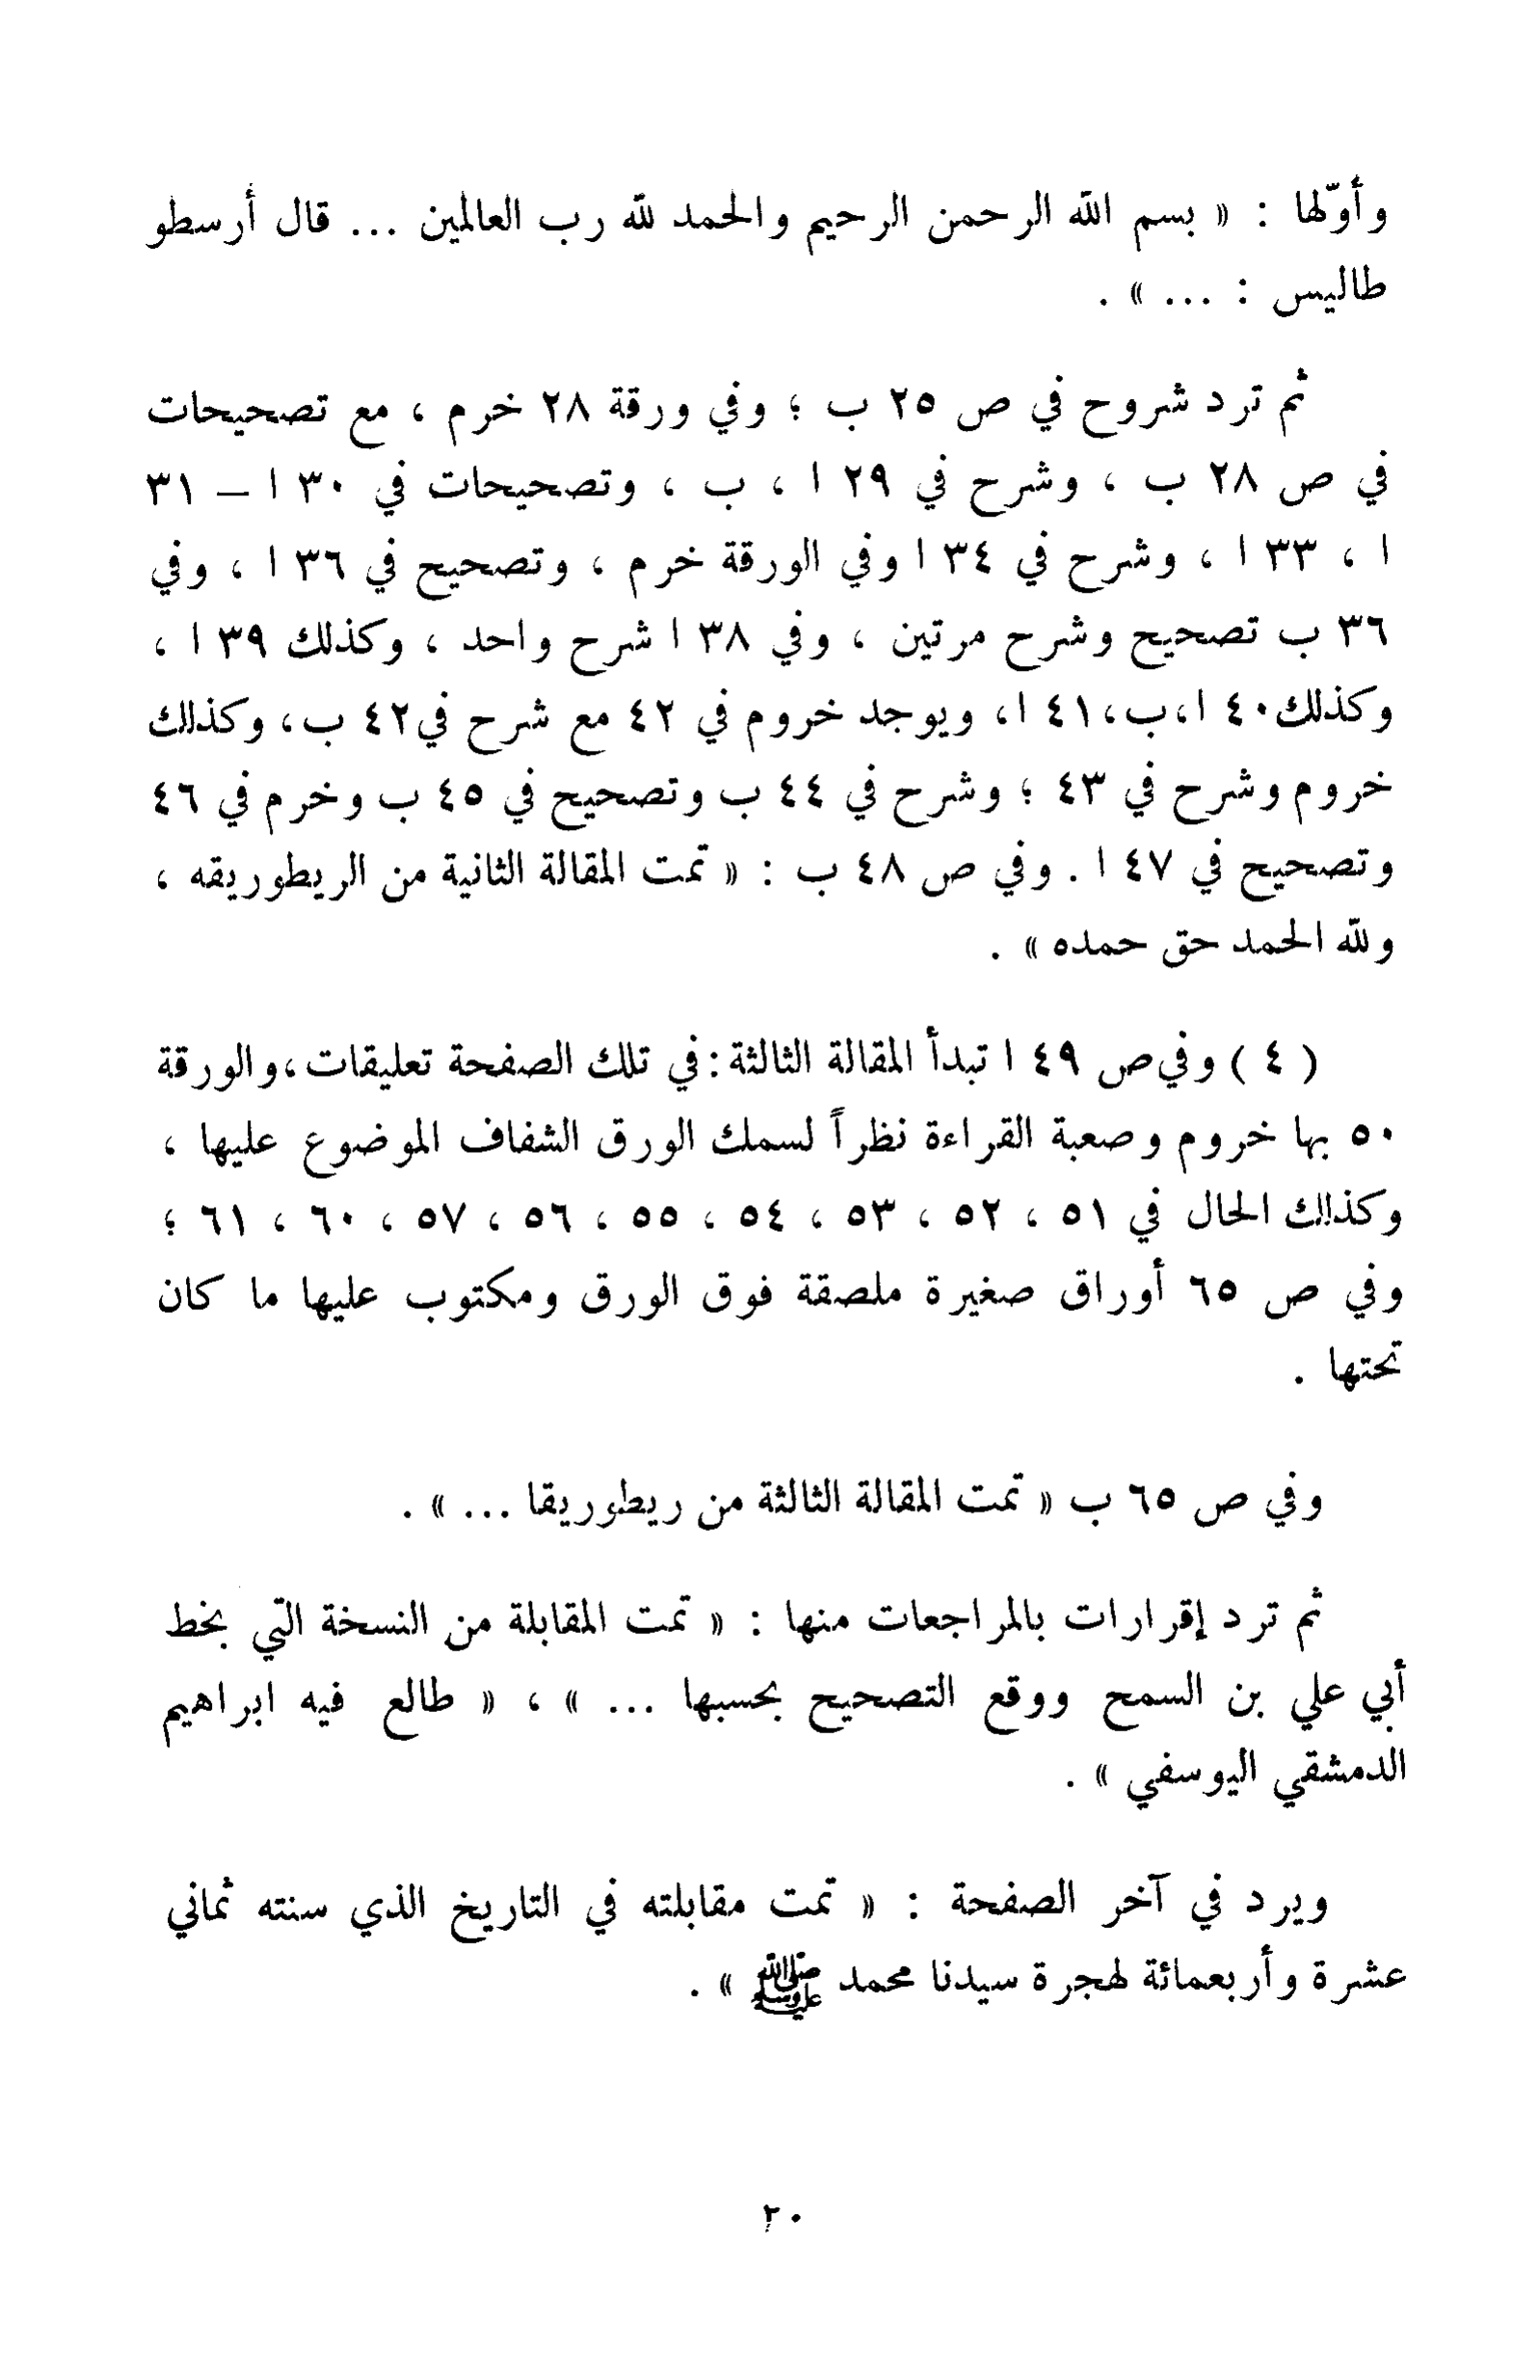 وأوّلها : « بسم الله الرحمن الرحيم والحمد لله رب العالمين ... قال أرسطو
طاليس : ... » .
ثم ترد شروح في ص ٢٥ ب ؛ وفي ورقة ٢٨ خرم ، مع تصحيحات
في ص ٢٨ ب ، وشرح في ٢٩ ا ، ب ، وتصحيحات في ٣٠ ا – ٣١
ا ، ٣٣ ا ، وشرح في ٣٤ ا وفي الورقة خرم ، وتصحيح في ٣٦ ا ، وفي
٣٦ ب تصحيح وشرح مرتين ، وفي ٣٨ ا شرح واحد ، وكذلك ٣٩ ا ،
وكذلك ٤٠ ا،ب،٤١ ا، ويوجد خروم في ٤٢ مع شرح في ٤٢ ب، وكذلك
خروم وشرح في ٤٣ ؛ وشرح في ٤٤ ب وتصحيح في ٤٥ ب وخرم في ٤٦
وتصحيح في ٤٧ ا . وفي ص ٤٨ ب : « تمت المقالة الثانية من الريطوريقه ،
ولله الحمد حق حمده » .
( ٤ ) وفي ص ٤٩ ا تبدأ المقالة الثالثة : في تلك الصفحة تعليقات ، والورقة
٥٠ بها خروم وصعبة القراءة نظراً لسمك الورق الشفاف الموضوع عليها ،
وكذلك الحال في ٥١ ، ٥٢ ، ٥٣ ، ٥٤ ، ٥٥ ، ٥٦ ، ٥٧ ، ٦٠ ، ٦١ ؛
وفي ص ٦٥ أوراق صغيرة ملصقة فوق الورق ومكتوب عليها ما كان
تحتها .
وفي ص ٦٥ ب « تمت المقالة الثالثة من ريطوريقا ... » .
ثم ترد إقرارات بالمراجعات منها : « تمت المقابلة من النسخة التي بخط
أبي علي بن السمح ووقع التصحيح بحسبها ... » ، « طالع فيه ابراهيم
الدمشقي اليوسفي » .
ويرد في آخر الصفحة : « تمت مقابلته في التاريخ الذي سنته ثماني
عشرة وأربعمائة لهجرة سيدنا محمد ﷺ » .
٢٠